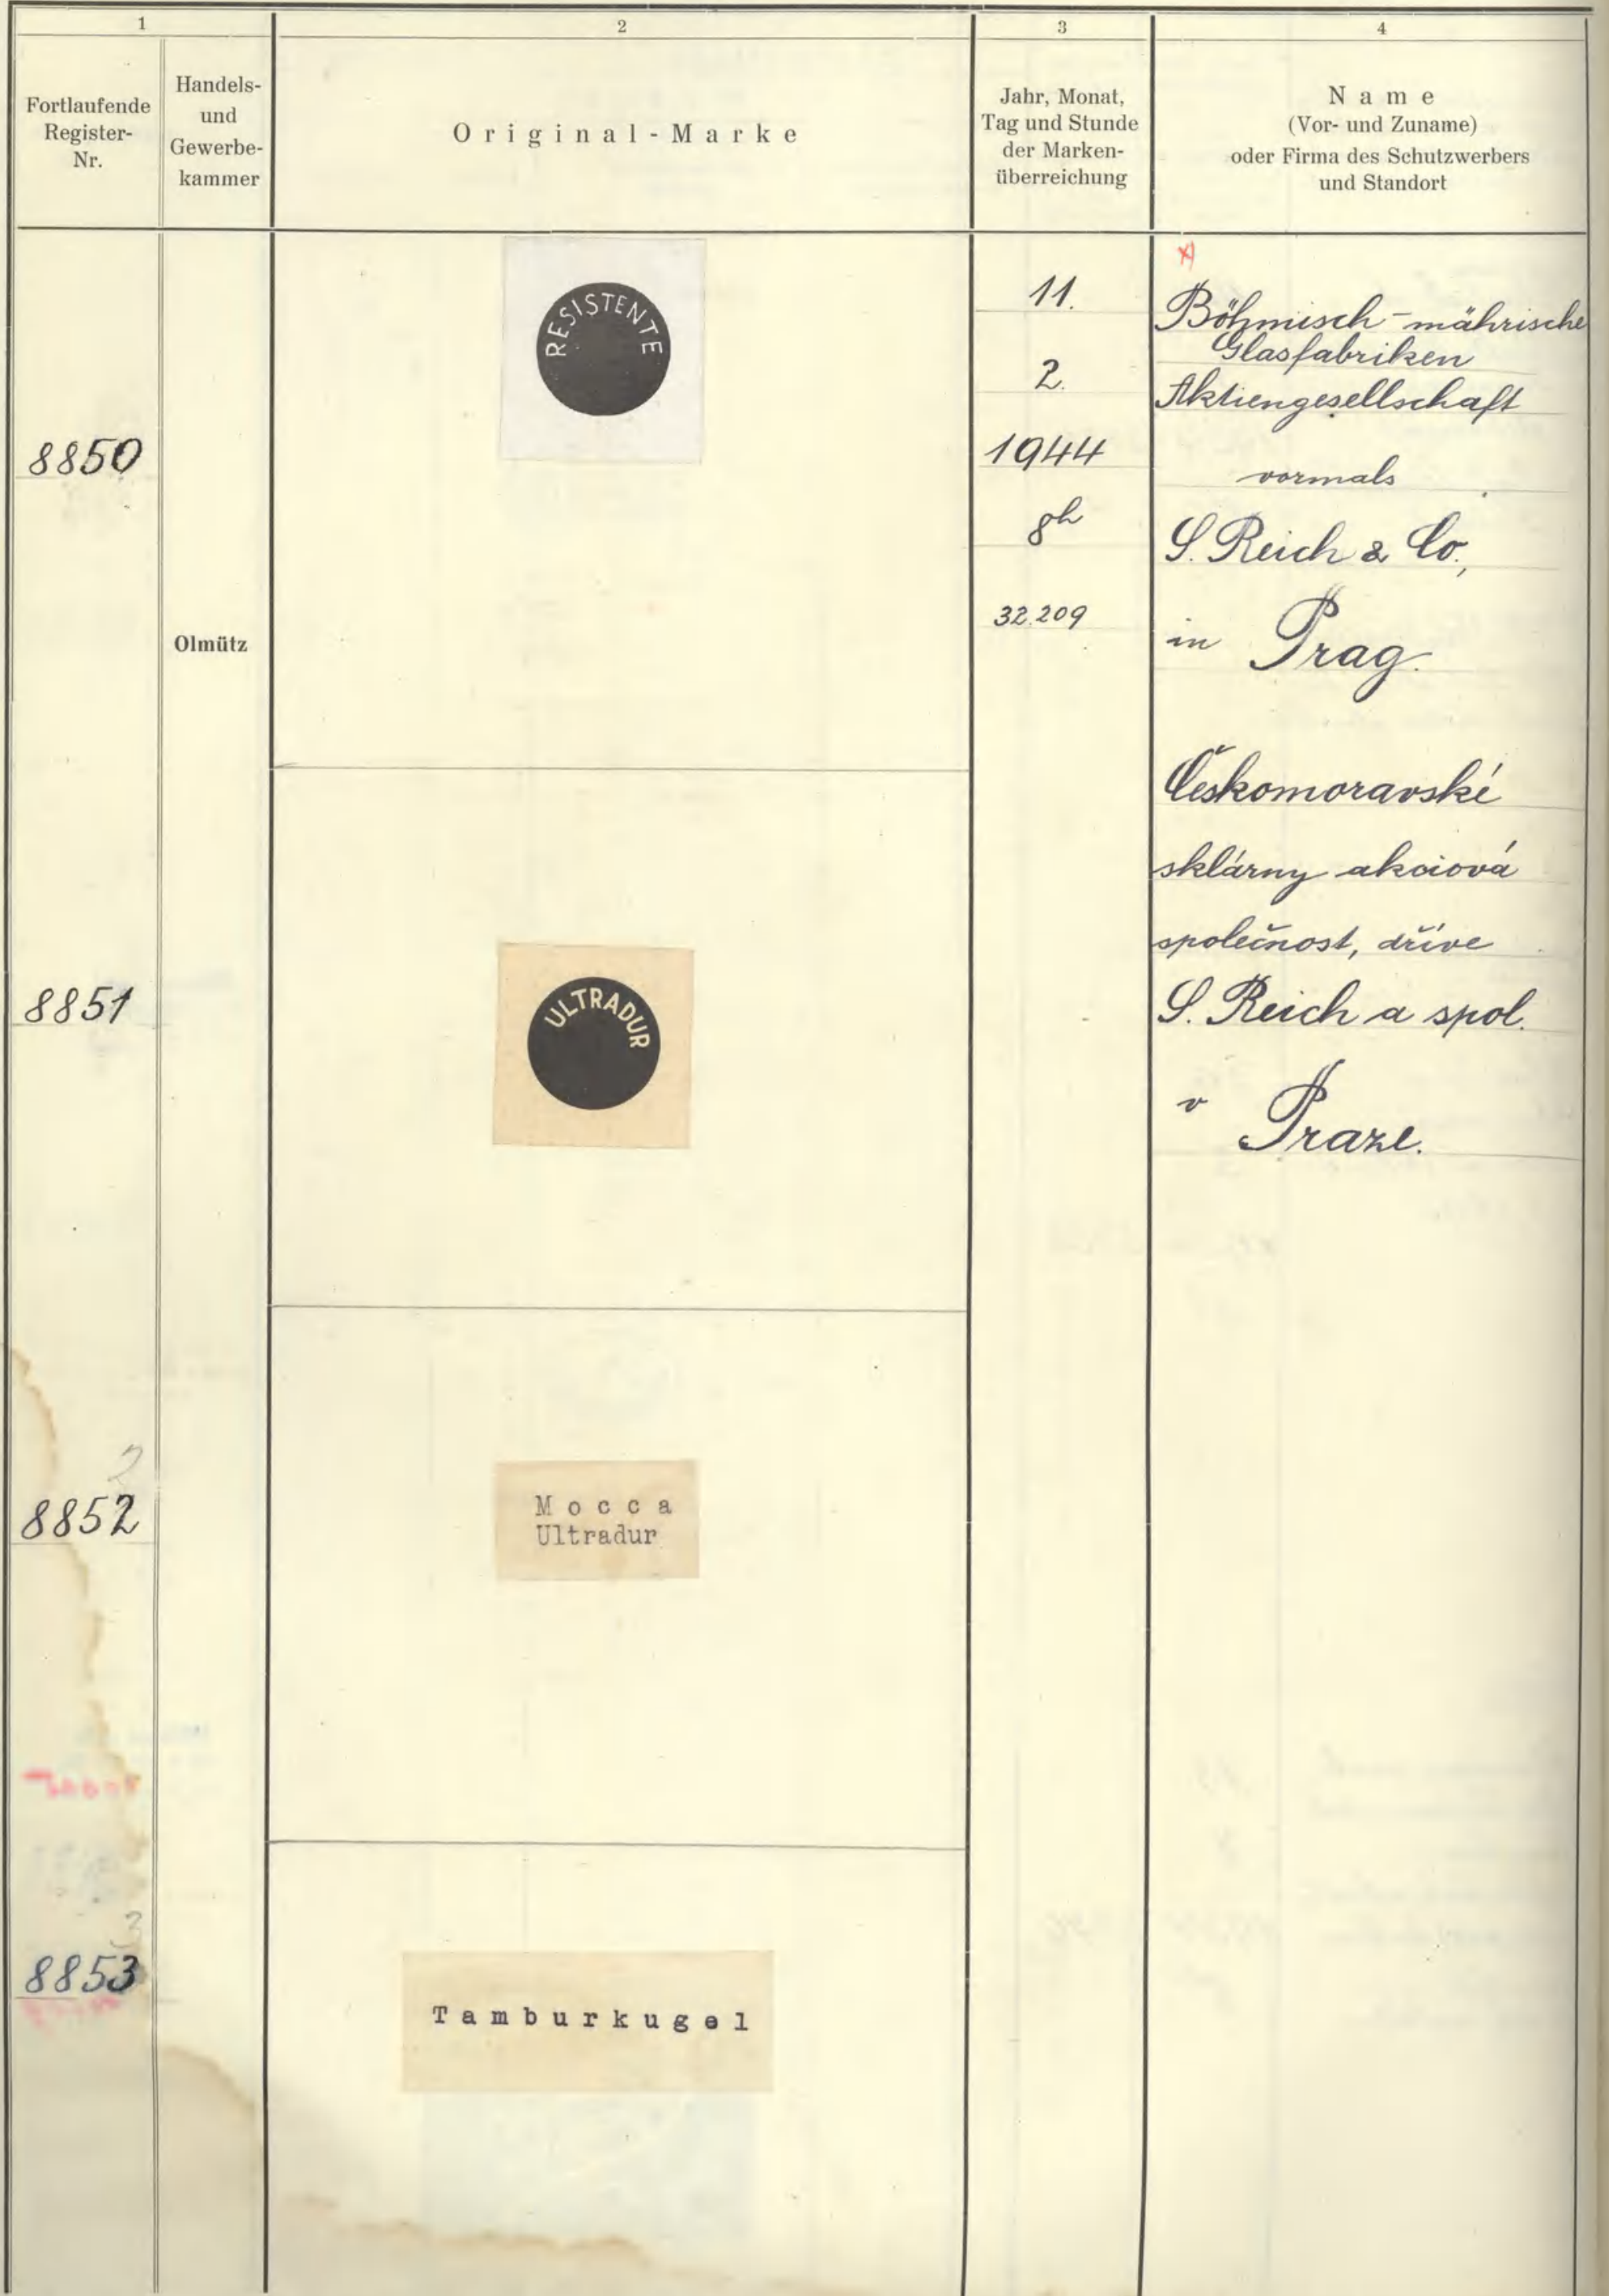 1
2
3
4
Fortlaufende
Register-
Nr.
Handels-
und
Gewerbe-
kammer
Original-Marke
Jahr, Monat,
Tag und Stunde
der Marken-
überreichung
Name
(Vor- und Zuname)
oder Firma des Schutzwerbers
und Standort
8850
Olmütz
RESISTENTE
11.
2.
1944
8h
32.209
x)
Böhmisch-mährische
Glasfabriken
Aktiengesellschaft
vormals
S. Reich & Co.,
in Prag.
Českomoravské
sklárny akciová
společnost, dříve
S. Reich a spol.
v Praze.
8851
ULTRADUR
2
8852
Mocca
Ultradur
3
8853
Tamburkugel